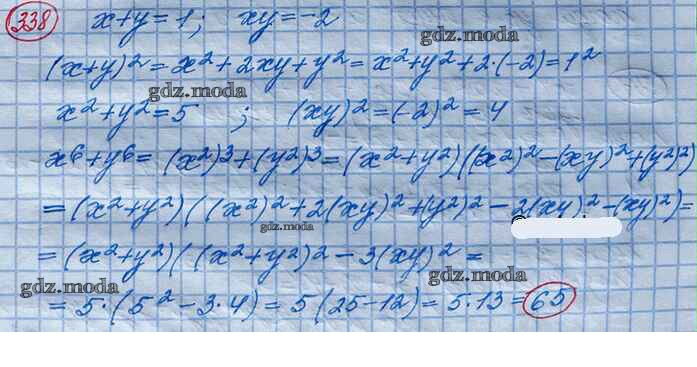 338 x+y=1; xy=-2
gdz.moda
(x+y)²=x²+2xy+y²=x²+y²+2·(-2)=1²
gdz.moda
x²+y²=5 ; (xy)²=(-2)²=4
x⁶+y⁶= (x²)³+(y²)³=(x²+y²)((x²)²-(xy)²+(y²)²)
=(x²+y²)((x²)²+2(xy)²+(y²)²-2(xy)²-(xy)²)=
gdz.moda
=(x²+y²)((x²+y²)²-3(xy)²=
gdz.moda
gdz.moda
=5·(5²-3·4)=5(25-12)=5·13=65